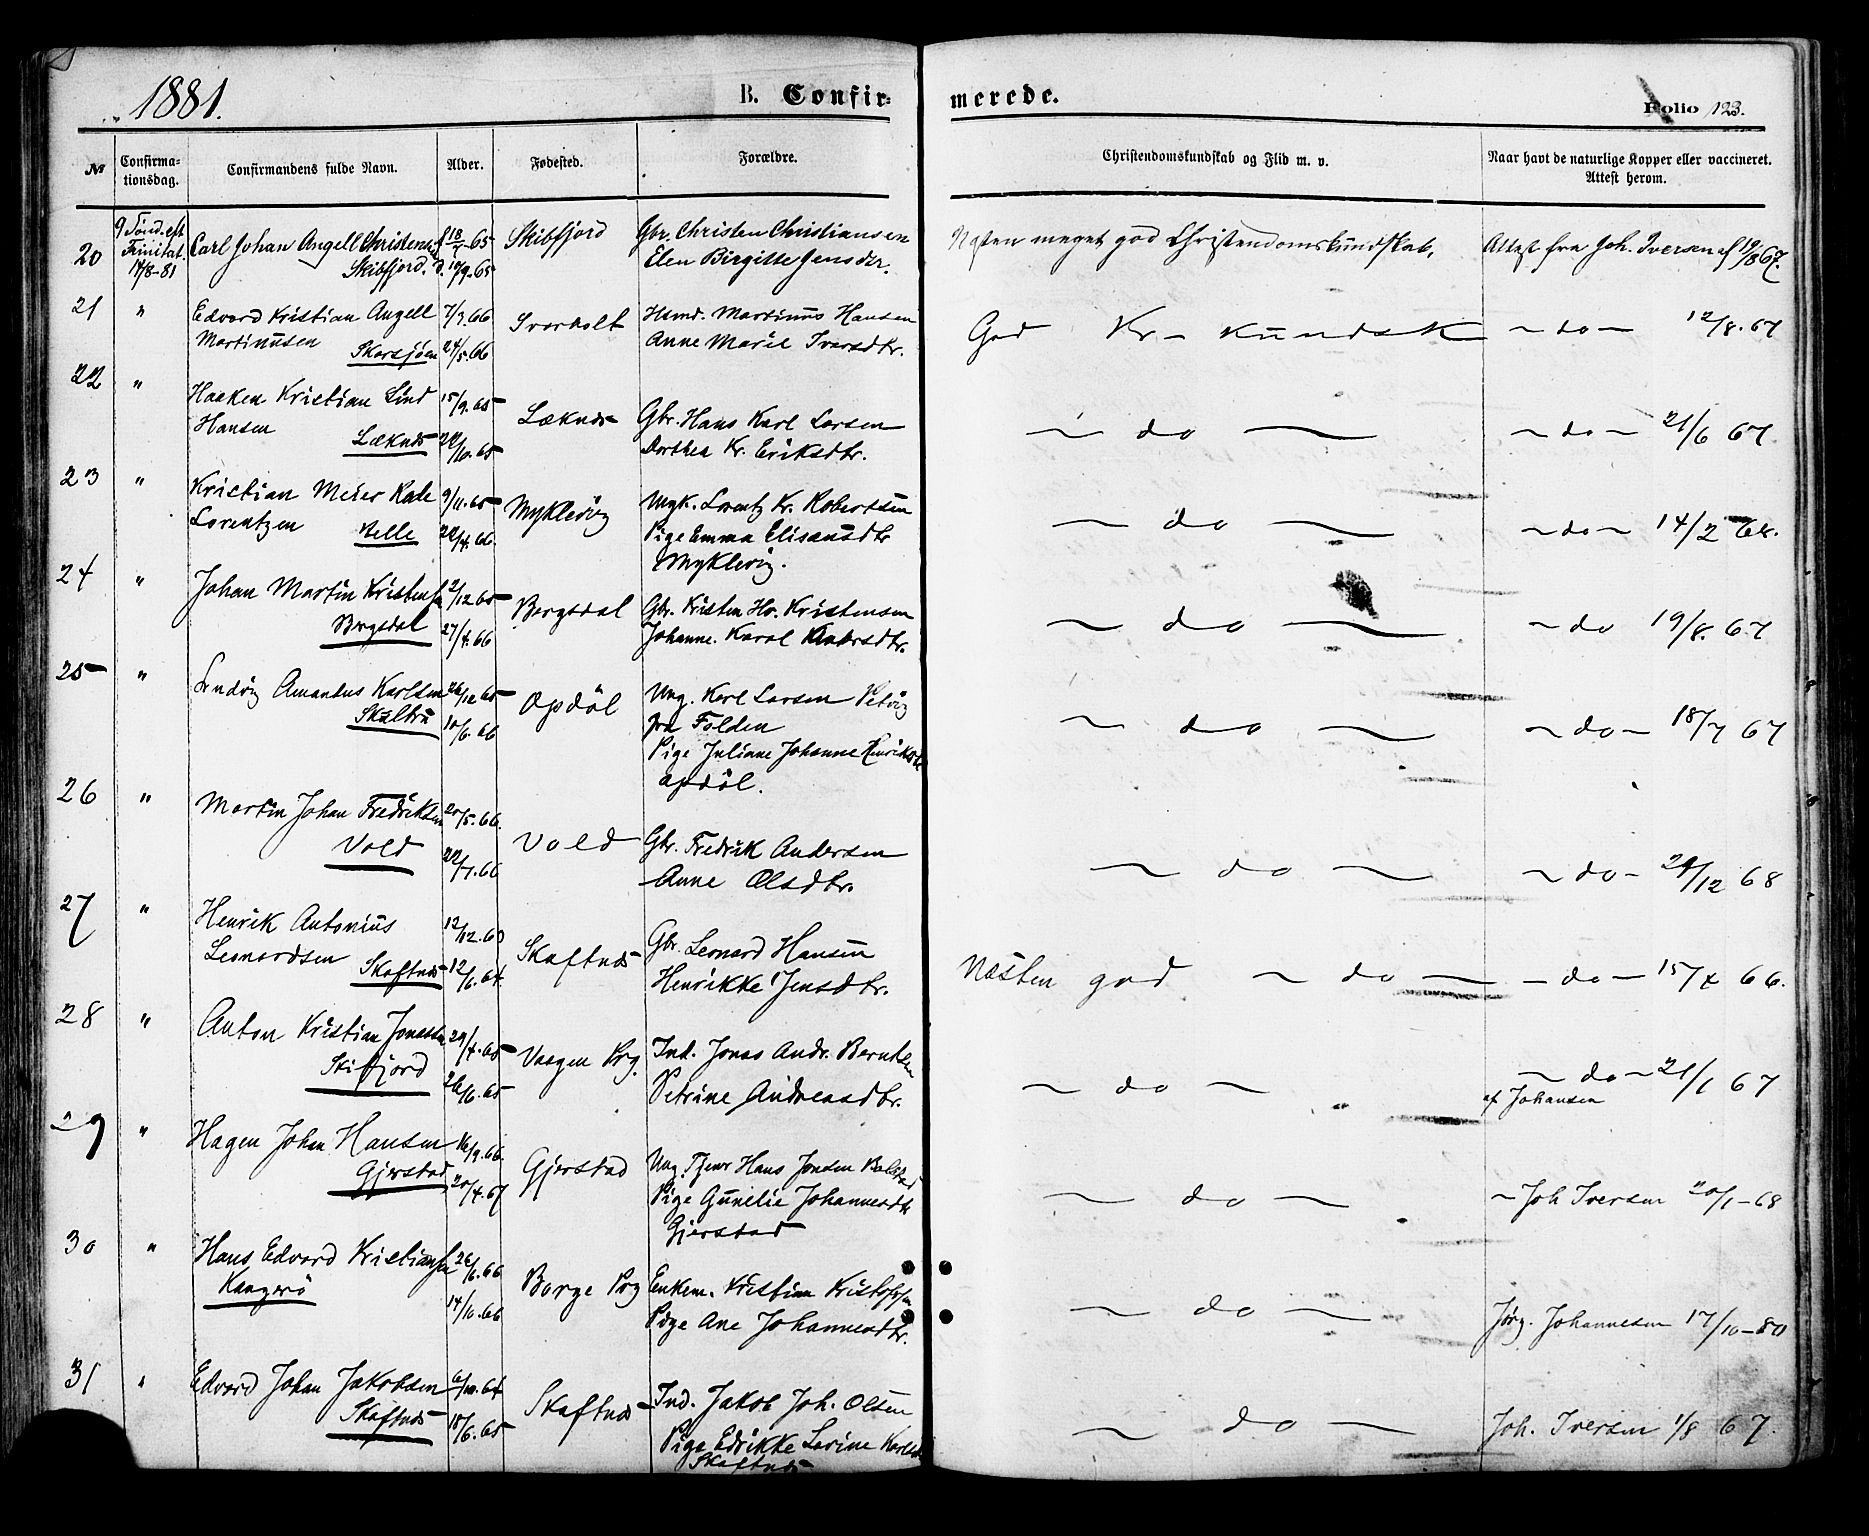 1881.
B. Confir-
merede.
Folio 123.
№
Confirma-
tionsdag.
Confirmandens fulde Navn.
Alder.
Fødested.
Forældre.
Christendomskundskab og Flid m. v.
Naar havt de naturlige Kopper eller vaccineret.
Attest herom.
20
9 Sønd. eft
Trinitat.
14/8-81
Carl Johan Angell Christens.
Skibfjord.
f 18/7 65
d. 17/9. 65
Skibfjord
Gbr. Christen Christiansen
Elen Birgitte Jensdtr.
Næsten meget god Christendomskundskab.
Attest fra Joh. Iversen af 19/8 67.
21
"
Edvard Kristian Angell
Martinusen
Skarsjøen
7/3. 66
24/5. 66
Svarholt
Husmd. Martinus Hansen
Anne Marie Iversdtr.
God Kr- kundsk
- do - 12/8. 67
22
"
Haaken Kristian Lind
Hansen
Læknæs
15/9. 65
22/10. 65
Læknæs
Gbr. Hans Karl Larsen
Dorthea Kr. Eriksdtr.
- do -
- do - 21/6 67.
23
"
Kristian Meier Rade
Lorentzen
Helle
9/11. 65
22/4. 66.
Myklevig
Ungk. Lorentz Kr. Robertsen
Pige Emma Elisausdtr
Myklevig.
- do -
- do - 14/2 68.
24
"
Johan Martin Kristensen
Bergsdal
2/12 65
27/4. 66
Bergsdal
Gbr. Kristen Hr. Kristensen
Johanne. Karol Andersdtr.
- do -
- do 19/8. 67
25
"
Ludvig Amandus Karlsen
Skulbru
26/12 65
10/6. 66
Opdøl
Ung. Karl Larsen Petvig
fra Folden
Pige Juliane Johanne Henriksdtr
Opdøl.
- do -
- do - 18/7 67
26
"
Martin Johan Fredriksen
Vold
20/5. 66.
22/7. 66
Vold
Gbr. Fredrik Andersen
Anne Olsdtr.
- do -
- do - 29/12 68
27
"
Henrik Antonius
Leonardsen
Skaftnæs
12/12. 63
12/6. 64.
Skaftnæs
Gbr. Leonard Hansen
Henrikke Jensdtr.
Næsten god - do -
- do - 15/4 66.
28
"
Anton Kristian Jonassen
Skifjord
29/4. 65
26/6. 65
Vaagen Prg.
Ind. Jonas Andr. Berntsen
Petrine Andreasdtr.
- do -
- do - 21/1 67
af Johansen
29
"
Hagen Johan Hansen
Gjerstad
16/9. 66.
20/4. 67
Gjerstad
Ung. Tjener Hans Jonsen Bolstad
Pige Gunelie Johannesdtr
Gjerstad
- do -
- Joh Iversen 20/1-68
30
"
Hans Edvard Kristiansen
Kangerø
26/6. 66
14/10. 66
Borge Prg
Enkem. Kristian Kristofersen
Pige Ane Johannesdtr.
- do -
Jørg. Johannesen 17/10-80
31
"
Edvard Johan Jakobsen
Skaftnæs
6/10. 64
18/6. 65
Skaftnæs
Ind. Jakob Joh. Olsen
Pige Edrikke Lovine Karlsdtr
Skaftnæs
- do -
Joh. Iversen 1/8 67.